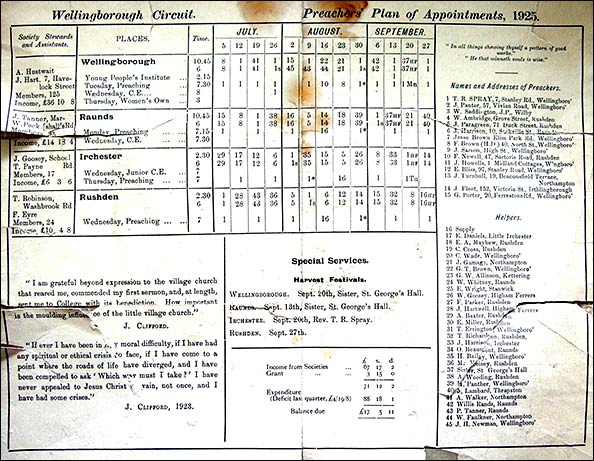 Wellingborough Circuit. Preachers' Plan of Appointments, 1925.
Society Stewards and Assistants. PLACES. Time. JULY. AUGUST. SEPTEMBER.
5 12 19 26 2 9 16 23 30 6 13 20 27
A. Hustwait
J. Hart, 7, Have-
lock Street
Members, 125
Income, £36 10 8
Wellingborough ... 10.45 8 1 41 1 15 1 22 21 1 42 1 37HF 1
6 8 1 41 1s
Young People's Institute ... 2.15
Tuesday, Preaching ... 7.30
Wednesday, C.E. ... 8
Thursday, Women's Own ... 3
J. Tanner, Mar-
Income, £14 18 4
Raunds ... 10.45 15 8 1 38 16 5 14 18 39
6 15 8 1 38
Monday, Preaching ... 7.15
Wednesday, C.E. ... 7.30
J. Goosey, School
T. Payne Rd.
Members, 17
Income, £6 3 6
Irchester ... 2.30 29 17 12 6
6 29 17 12 6
Wednesday, Junior C.E. ... 7
Thursday, Preaching ... 7
T. Robinson,
Washbrook Rd
F. Eyre
Members, 24
Income, £10 4 8
Rushden ... 2.30 1 28 43 36 5 1 6 12 14 15 32 8 16HF
6 1 28 43 36 5 1s 6 12 14 15 32 8 16HF
Wednesday, Preaching ... 7 1 1 1 1 10 1 1*
"I am grateful beyond expression to the village church
that reared me, commended my first sermon, and, at length,
sent me to College with its benediction. How important
is the moulding influence of the little village church."
J. Clifford.
"If ever I have been in any moral difficulty, if I have had
any spiritual or ethical crisis to face, if I have come to a point
where the roads of life have diverged, and I have
been compelled to ask 'Which way must I take?' I have
never appealed to Jesus Christ vain, not once, and I
have had some crises."
J. Clifford, 1923.
Special Services.
Harvest Festivals.
Wellingborough. Sept. 20th, Sister, St. George's Hall.
Raunds. Sept. 13th, Sister, St. George's Hall.
Irchester. Sept. 20th, Rev. T. R. Spray.
Rushden. Sept. 27th.
£ s. d.
Income from Societies ... 67 17 2
Grant ... 3 15 0
71 12 2
Expenditure
(Deficit last quarter, £4/19/8) 88 18 1
Balance due £17 5 11
"In all things shewing thyself a pattern of good
works."
"He that winneth souls is wise."
Names and Addresses of Preachers.
1 T. R. SPRAY, 7, Stanley Rd., Wellingboro'
2 J. Panter, 57, Vivian Road, Wellingboro'
3 W. Partington, J.P., Wilby
4 W. Ambridge, Grove Street, Raunds
5 J. Paragreen, 71 Duck Street, Rushden
6 J. Harrison, 10, Sackville St., Raunds
7 Jesse Brown Elim Park Rd. Wellingboro'
8 F. Brown (H.D.) 40, North St., Wellingboro'
9 J. Sarsen, High St., Wellingboro'
10 F. Newell, 47, Sartoris Road, Rushden
11 J. Howells, 1 Midland Cottages, W'ngboro'
12 E. Bliss, 97, Stanley Road, Wellingboro'
13 F. Turnbull, 19, Beaconsfield Terrace,
Northampton
14 J. Fleet, 152, Victoria St., Irthlingborough
15 G. Porter, 20, Ferrestone Rd., Wellingboro'
Helpers.
16 Supply
17 E. Daniels, Little Irchester
18 E. A. Mayhew, Rushden
19 C. Cross, Rushden
20 C. Wade, Wellingboro'
21 J. Gamage, Northampton
22 G. T. Brown, Wellingboro'
23 G. W. Allinson, Kettering
24 W. Whitney, Raunds
25 E. Wright, Stanwick
26 W. Goosey, Higham Ferrers
27 F. Parker, Rushden
28 J. Hartwell, Higham Ferrers
29 A. Baxter, Rushden
30 E. Miller, Rushden
31 T. Drvington, Wellingboro'
32 T. Richardson, Rushden
33 J. Harrison, Irchester
34 O. Beaumont, Raunds
35 H. Bailey, Wellingboro'
36 Mr. Morsey, Rushden
37 Sister, St. George's Hall
38 A. Wooding, Rushden
39 H. Panther, Wellingboro'
40 S. Lambard, Thrapston
41 A. Walker, Northampton
42 Willis Rands, Rushden
43 P. Tanner, Raunds
44 W. Faulkner, Northampton
45 J. H. Newman, Wellingboro'